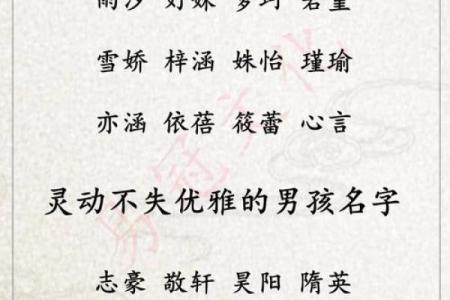 雨汐 好姝 梦珂 若堇
雪娇 梓涵 姝怡 瑾瑜
亦涵 依蓓 筱蕾 心言
灵动不失优雅的男孩名字
志豪 敬轩 昊阳 隋英